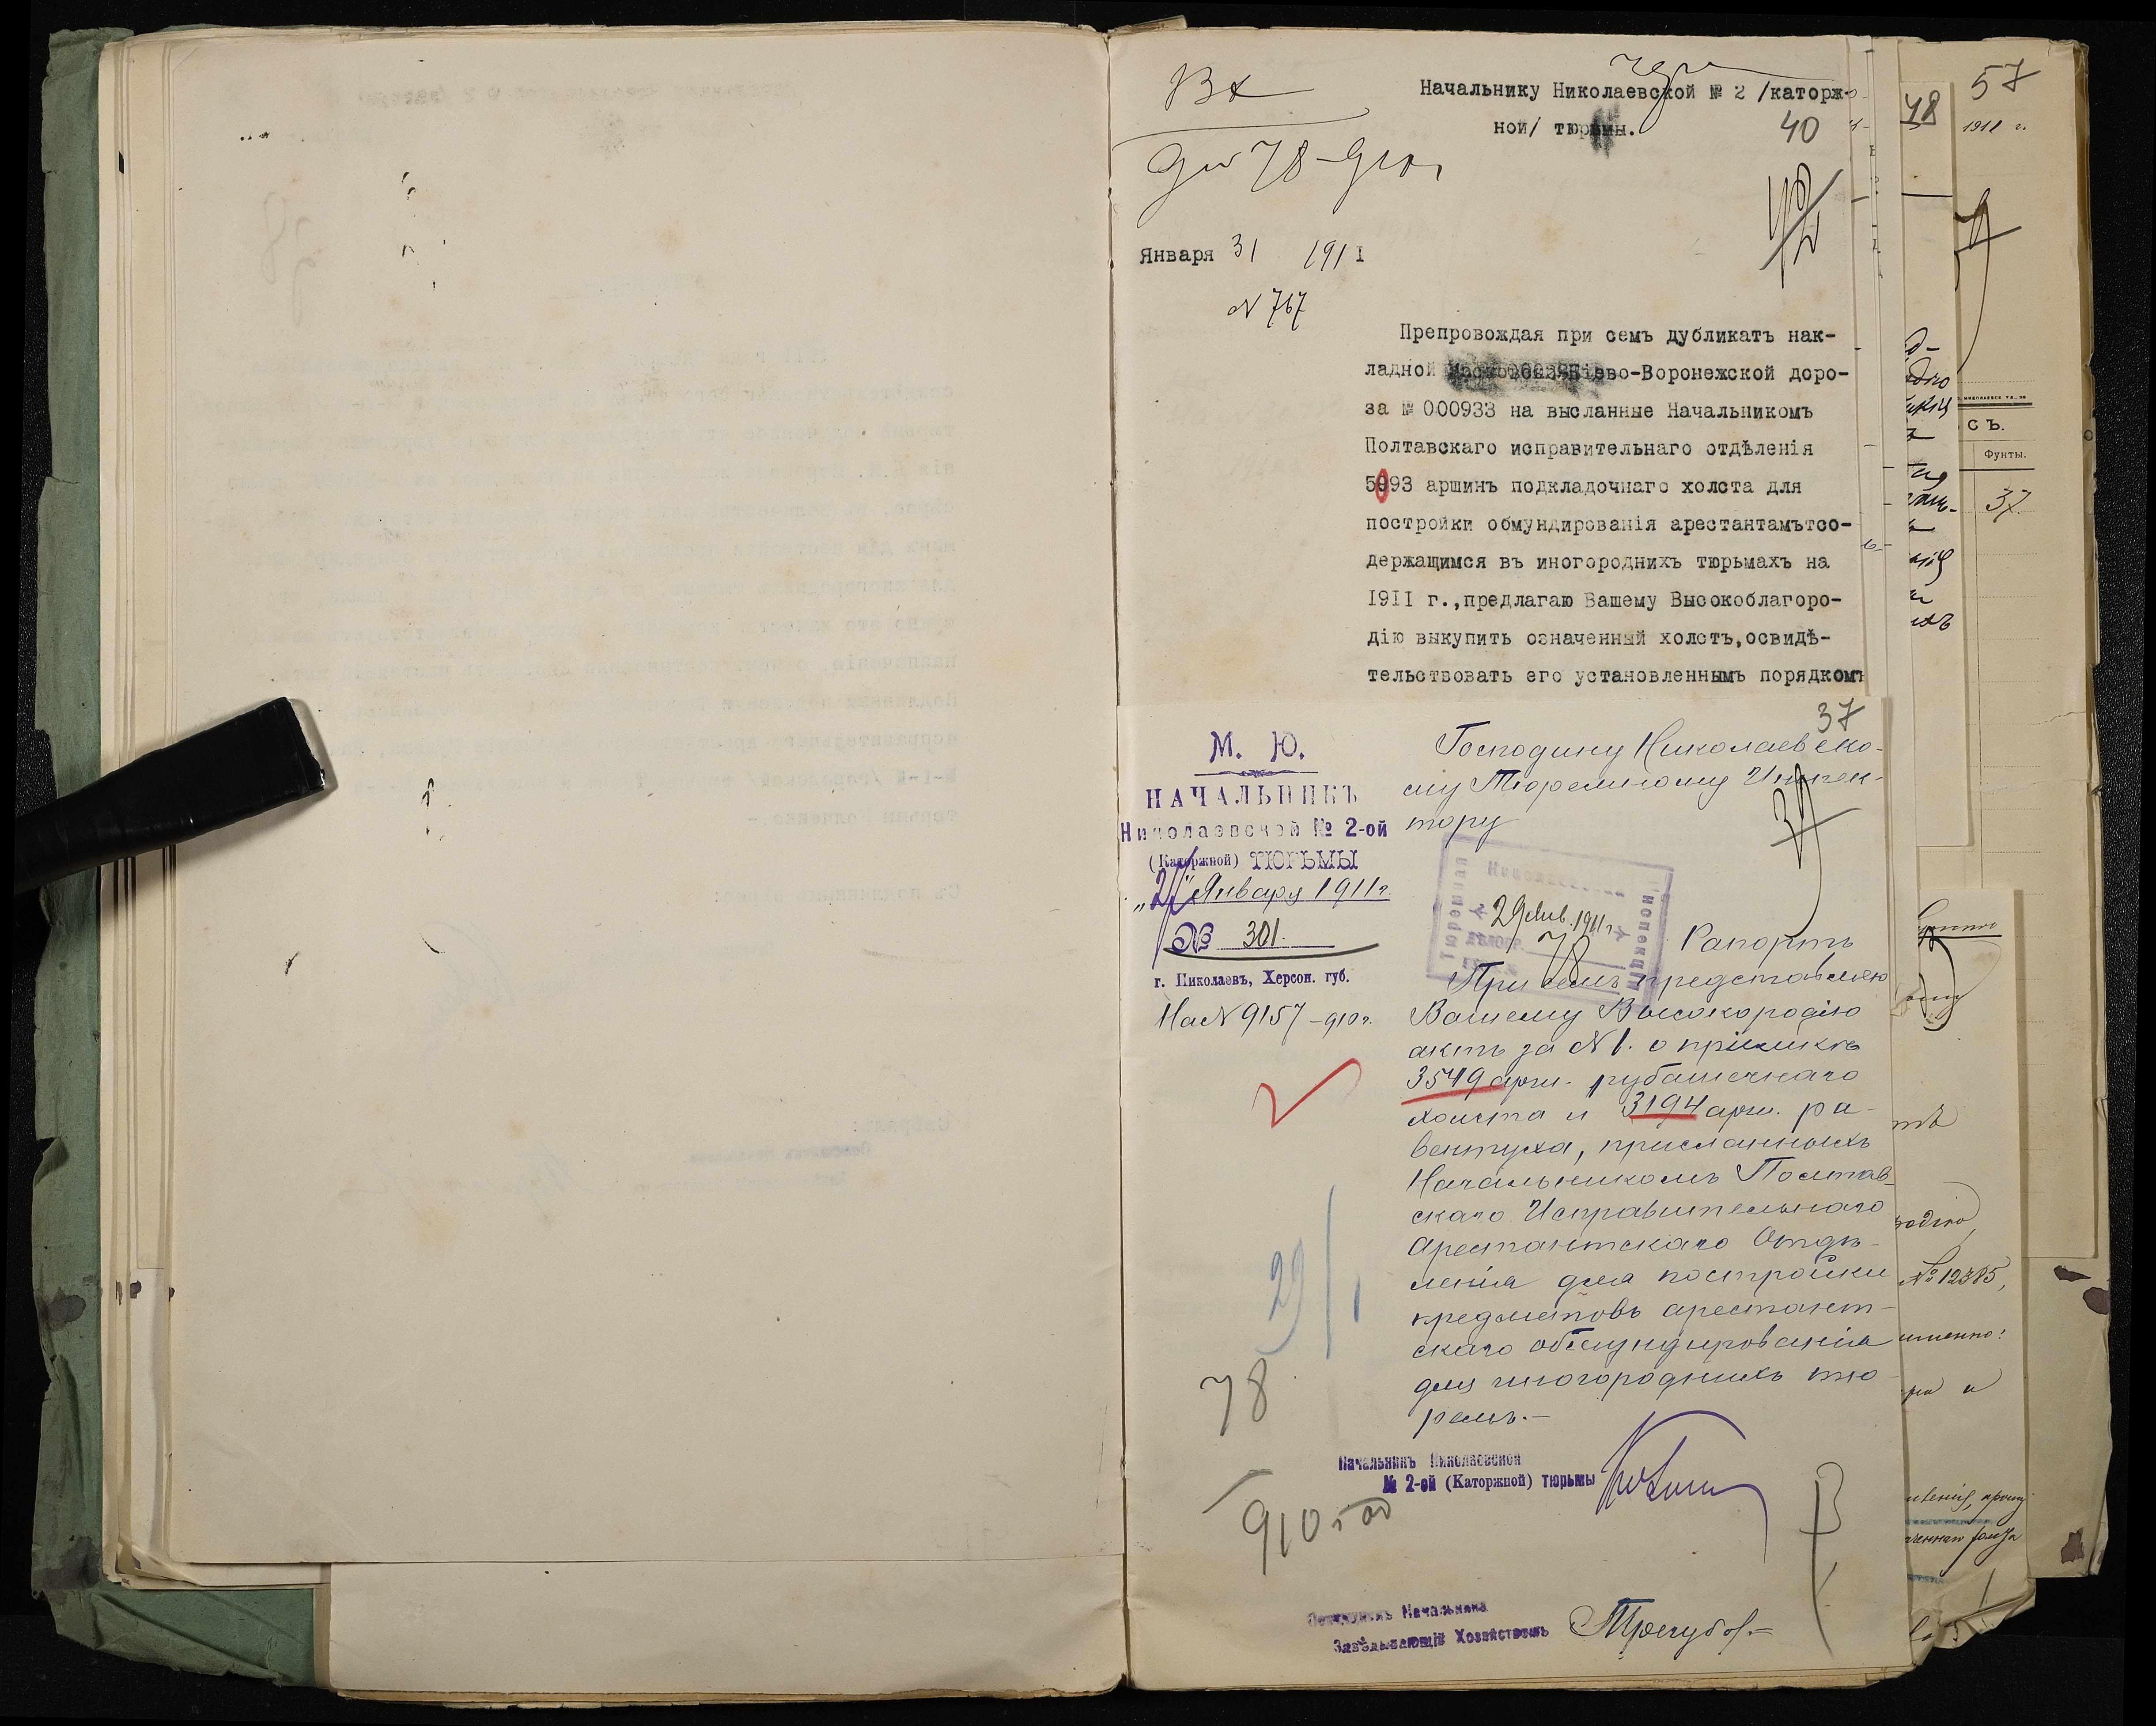 Вх
Начальнику Николаевской № 2 /каторж-
ной/ тюрьмы.
40
78
Января 31 1911
N 767
Препровождая при семъ дубликатъ нак-
ладной Кіево-Воронежской доро-
за № 000933 на высланные Начальникомъ
Полтавскаго исправительнаго отдѣленія
5993 аршинъ подкладочнаго холста для
постройки обмундированія арестантамътсо-
держащимся въ иногороднихъ тюрьмахъ на
1911 г.,предлагаю Вашему Высокоблагоро-
дію выкупить означенный холстъ,освидѣ-
тельствовать его установленнымъ порядкомъ
37
М. Ю.
НАЧАЛЬНИКЪ
Николаевской № 2-ой
(Каторжной) ТЮРЬМЫ
Января 1911 г.
№ 301.
г. Николаевъ, Херсон. губ.
На N 9157 – 910 г.
Господину Николаевско-
му Тюремному Инспек-
тору
29 Янв. 1911 г.
78
Рапортъ
При семъ представляю
Вашему Высокородію
актъ за N 1. о пріемкѣ
3549 арш. рубашечнаго
холста и 3194 арш. ра-
вентуха, присланныхъ
Начальникомъ Полтав-
скаго Исправительнаго
Арестантскаго Отдѣ-
ленія для постройки
предметовъ арестант-
скаго обмундированія
для иногороднихъ тю-
ремъ.—
29/1
78
910
Начальникъ Николаевской
№ 2-ой (Каторжной) тюрьмы
Помощникъ Начальника
Завѣдывающій Хозяйствомъ
48
57
1911 г.
СЪ.
Фунты.
37
№ 12385,
именно: